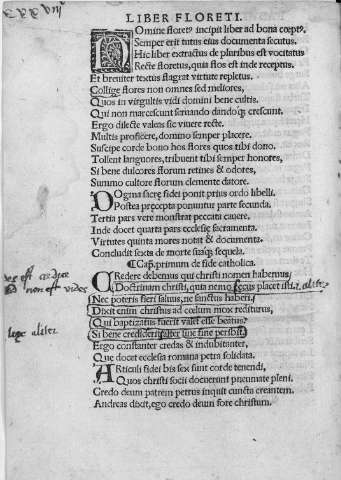 LIBER FLORETI.
NOmine floretꝰ incipit liber ad bona cœptꝰ.
Semper erit tutus eius documenta secutus.
Hic liber extractus de pluribus est vocitatus
Recte floretus, quia flos est inde receptus.
Et breuiter textus flagrat virtute repletus.
Collige flores non omnes sed meliores,
Quos in virgultis vidi domini bene cultis.
Qui non marcescunt seruando dandoqꝫ crescunt.
Ergo dilecte valeas sic viuere recte.
Multis proficere, domino semper placere.
Suscipe corde bono hos flores quos tibi dono.
Tollent languores, tribuent tibi semper honores,
Si bene dulcores florum retines & odores,
Summo cultore florum clemente datore.
DOgma sacrę fidei ponit prius ordo libelli.
Postea pręcepta ponuntur parte secunda.
Tertia pars vere monstrat peccata cauere.
Inde docet quarta pars ecclesię sacramenta.
Virtutes quinta mores notat & documenta.
Concludit sexta de morte suaqꝫ sequela.
¶Cap. primum de fide catholica.
CRedere debemus qui christi nomen habemus,
Doctrinam christi, quia nemo secus placet isti.
Nec poteris fieri saluus, ne sanctus haberi.
Dixit enim christus ad cœlum mox rediturus,
Qui baptizatus fuerit valet esse beatus.
Si bene crediderit aliter sine fine peribit.
Ergo constanter credas & indubitanter,
Que docet ecclesia romana petra solidata.
ARticuli fidei bis sex sunt corde tenendi,
Quos christi socii docuerunt pneumate pleni.
Credo deum patrem petrus inquit cuncta creantem.
Andreas dixit, ego credo deum fore christum.
non est vides
lege aliter